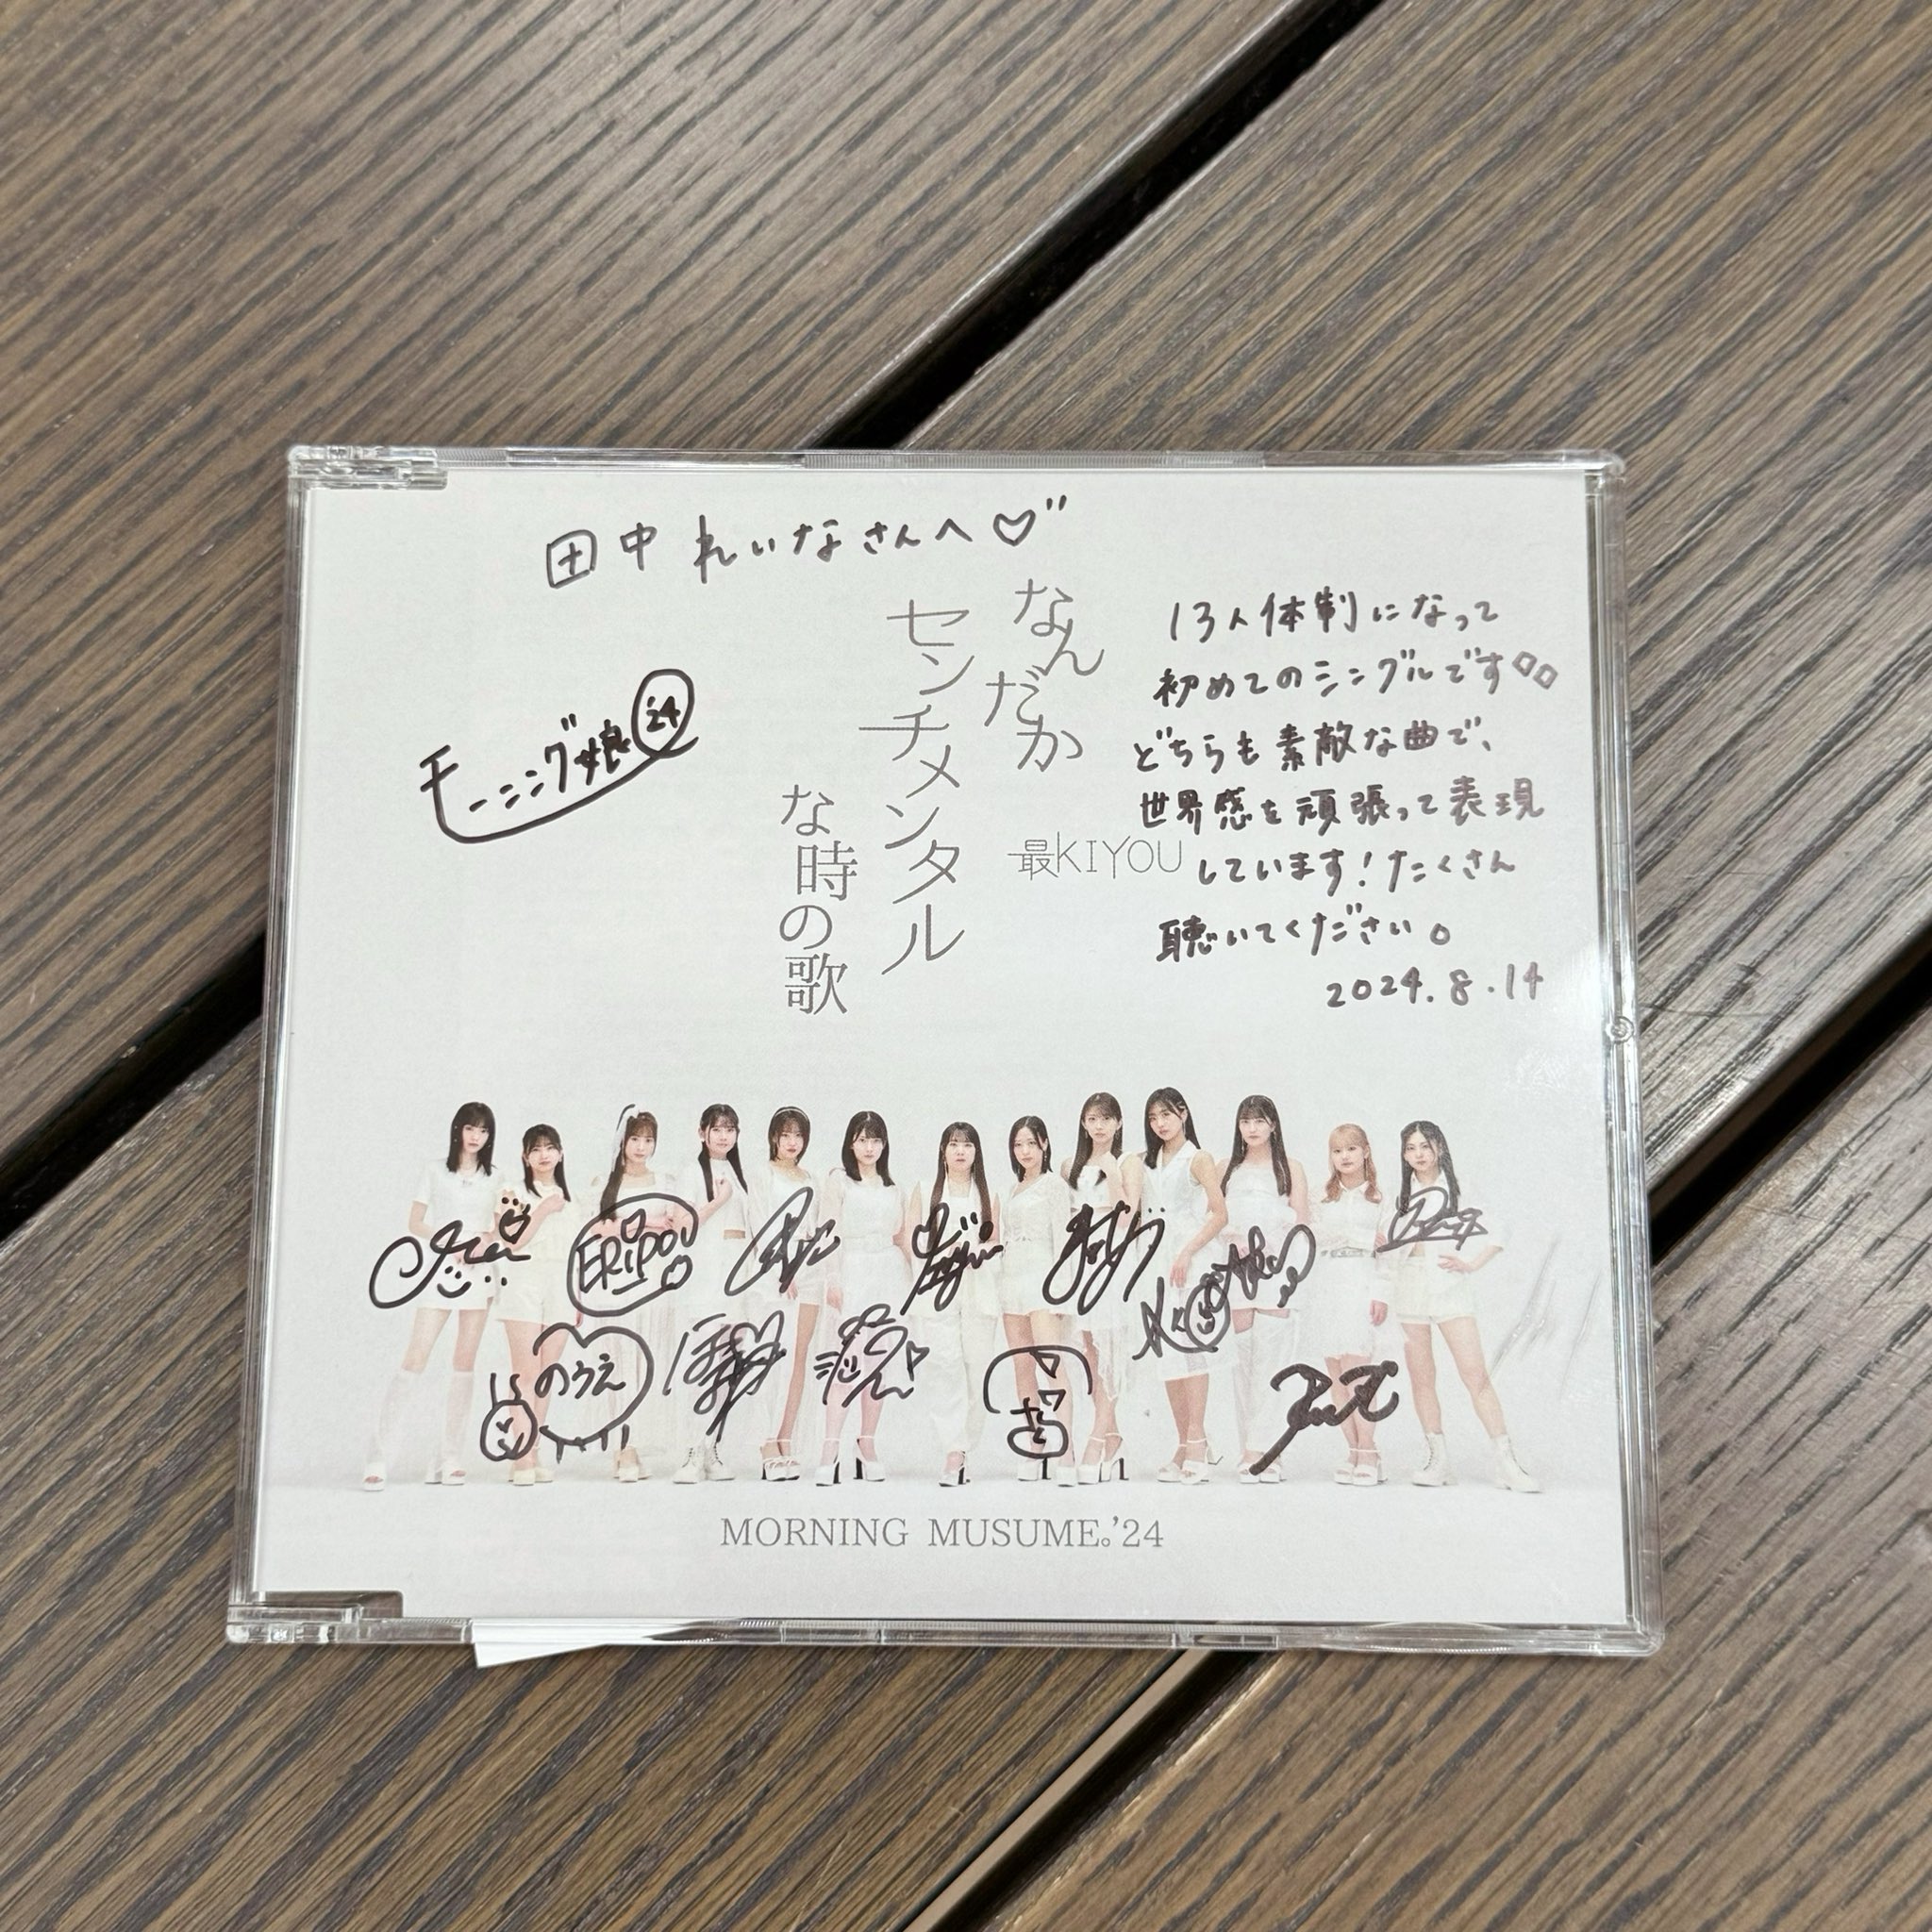 田中れいなさんへ♡
モーニング娘'24
なんだか
センチメンタル
な時の歌
最KIYOU
13人体制になって
初めてのシングルです◇◇
どちらも素敵な曲で、
世界感を頑張って表現
しています!たくさん
聴いてください。
2024.8.14
ERIPON
のうえ
MORNING MUSUME。'24